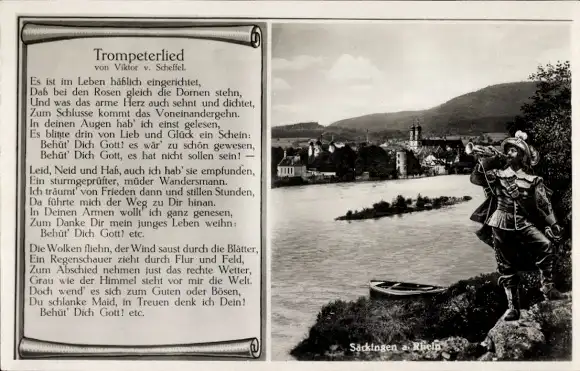 Trompeterlied
von Viktor v. Scheffel.
Es ist im Leben häßlich eingerichtet,
Daß bei den Rosen gleich die Dornen stehn,
Und was das arme Herz auch sehnt und dichtet,
Zum Schlusse kommt das Voneinandergehn.
In deinen Augen hab' ich einst gelesen,
Es blitzte drin von Lieb und Glück ein Schein:
Behüt' Dich Gott! es wär' zu schön gewesen,
Behüt' Dich Gott, es hat nicht sollen sein! —
Leid, Neid und Haß, auch ich hab' sie empfunden,
Ein sturmgeprüfter, müder Wandersmann.
Ich träumt' von Frieden dann und stillen Stunden,
Da führte mich der Weg zu Dir hinan.
In Deinen Armen wollt' ich ganz genesen,
Zum Danke Dir mein junges Leben weihn:
Behüt' Dich Gott! etc.
Die Wolken fliehn, der Wind saust durch die Blätter,
Ein Regenschauer zieht durch Flur und Feld,
Zum Abschied nehmen just das rechte Wetter,
Grau wie der Himmel steht vor mir die Welt.
Doch wend' es sich zum Guten oder Bösen,
Du schlanke Maid, in Treuen denk ich Dein!
Behüt' Dich Gott! etc.
Säckingen a. Rhein